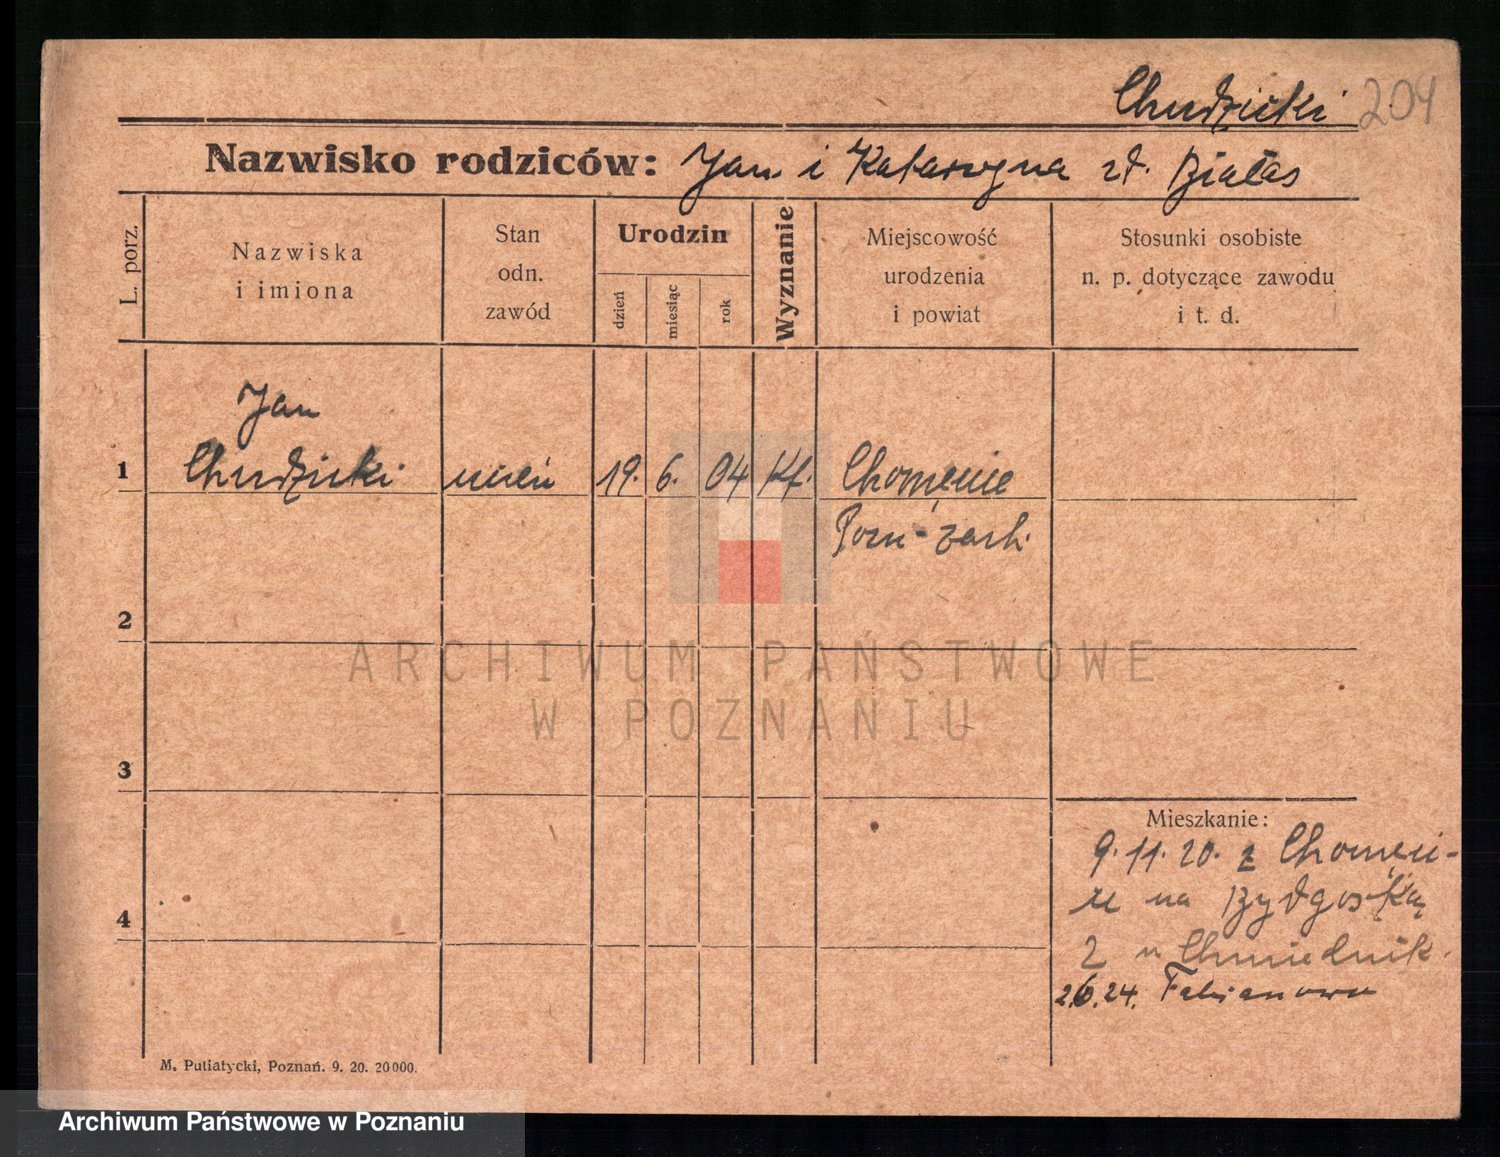 Chudzicki 204
Nazwisko rodziców: Jan i Katarzyna zd. Białas
L. porz.
Nazwiska
i imiona
Stan
odn.
zawód
Urodzin
dzień
miesiąc
rok
Wyznanie
Miejscowość
urodzenia
i powiat
Stosunki osobiste
n. p. dotyczące zawodu
i t. d.
Jan
1 Chudzicki uczeń 19. 6. 04 Kt. Chomęcice
Pozn-zach
2
3
4
Mieszkanie:
9.11.20. z Chomęci-
na Bydgoską
2 u
24. Fabianowo
M. Putiatycki, Poznań. 9. 20. 20000.
ARCHIWUM PAŃSTWOWE
W POZNANIU
Archiwum Państwowe w Poznaniu